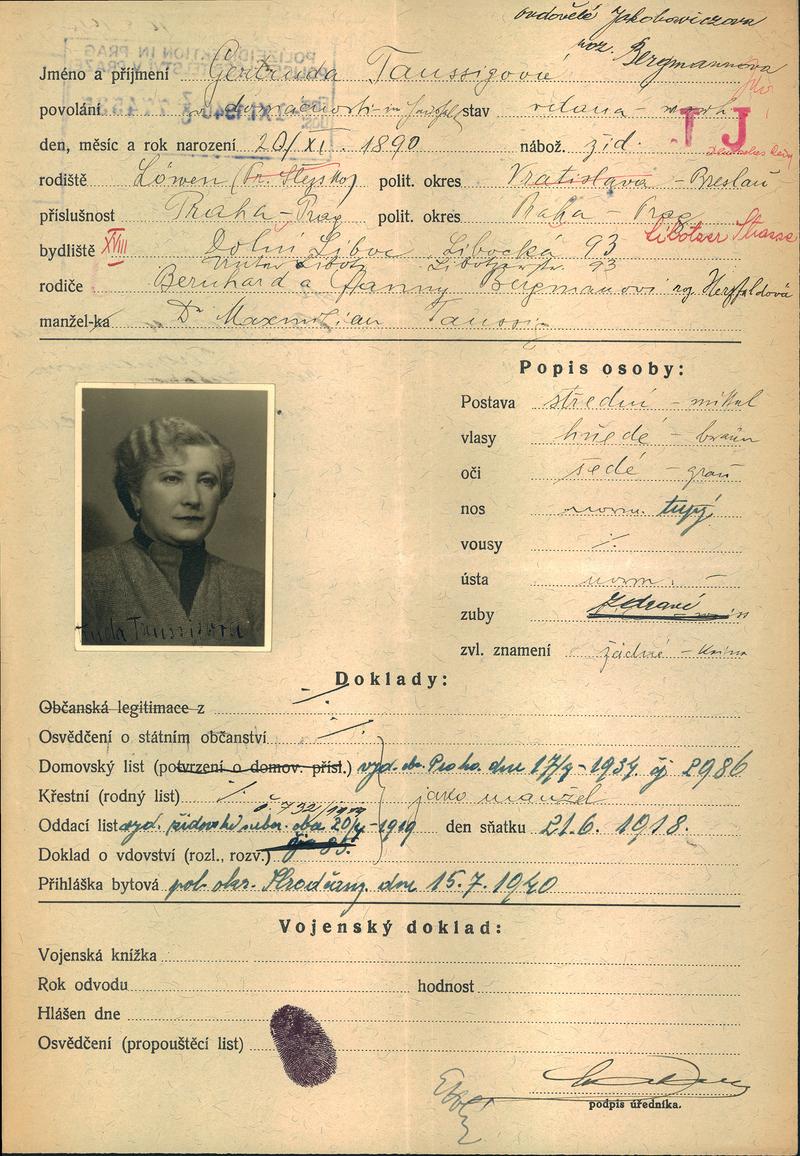 ovdovělá Jakobowiczova
roz. Bergmannova
Jméno a příjmení Gertruda Taussigová
povolání v domácnosti - im Haushalt stav vdaná - verh.
J J
den, měsíc a rok narození 20/XI. 1890 nábož. žid.
rodiště Löwen (Pr. Slezsko) polit. okres Vratislava - Breslau
příslušnost Praha - Prag polit. okres Praha - Prag
bydliště XVIII Dolní Liboc Libocká 93 Libotzer Strasse
Unter Libotz Libotzerstr. 93
rodiče Bernhard a Fanny Bergmanovi roz. Herzfeldová
manžel-ka Dr Maxmilian Taussig
Popis osoby:
Postava střední - mittel
vlasy hnědé - braun
oči šedé - grau
nos norm. tupý
vousy ./.
ústa norm. -
zuby zdravé
zvl. znamení žádné - keine
Taussigová
Doklady:
Občanská legitimace z ./.
Osvědčení o státním občanství ./.
Domovský list (potvrzení o domov. přísl.) vyd. ob. Praha. dne 17/7-1934 čj 2986
Křestní (rodný list) ./. jako manžel
č. 732/1919
Oddací list vyd. židovské nábož. ob. 20/7-1919 den sňatku 21.6. 1918.
Doklad o vdovství (rozl., rozv.)
Přihláška bytová pol. okr. Hradčany. dne 15.7.1940
Vojenský doklad:
Vojenská knížka
Rok odvodu hodnost
Hlášen dne
Osvědčení (propouštěcí list)
podpis úředníka.